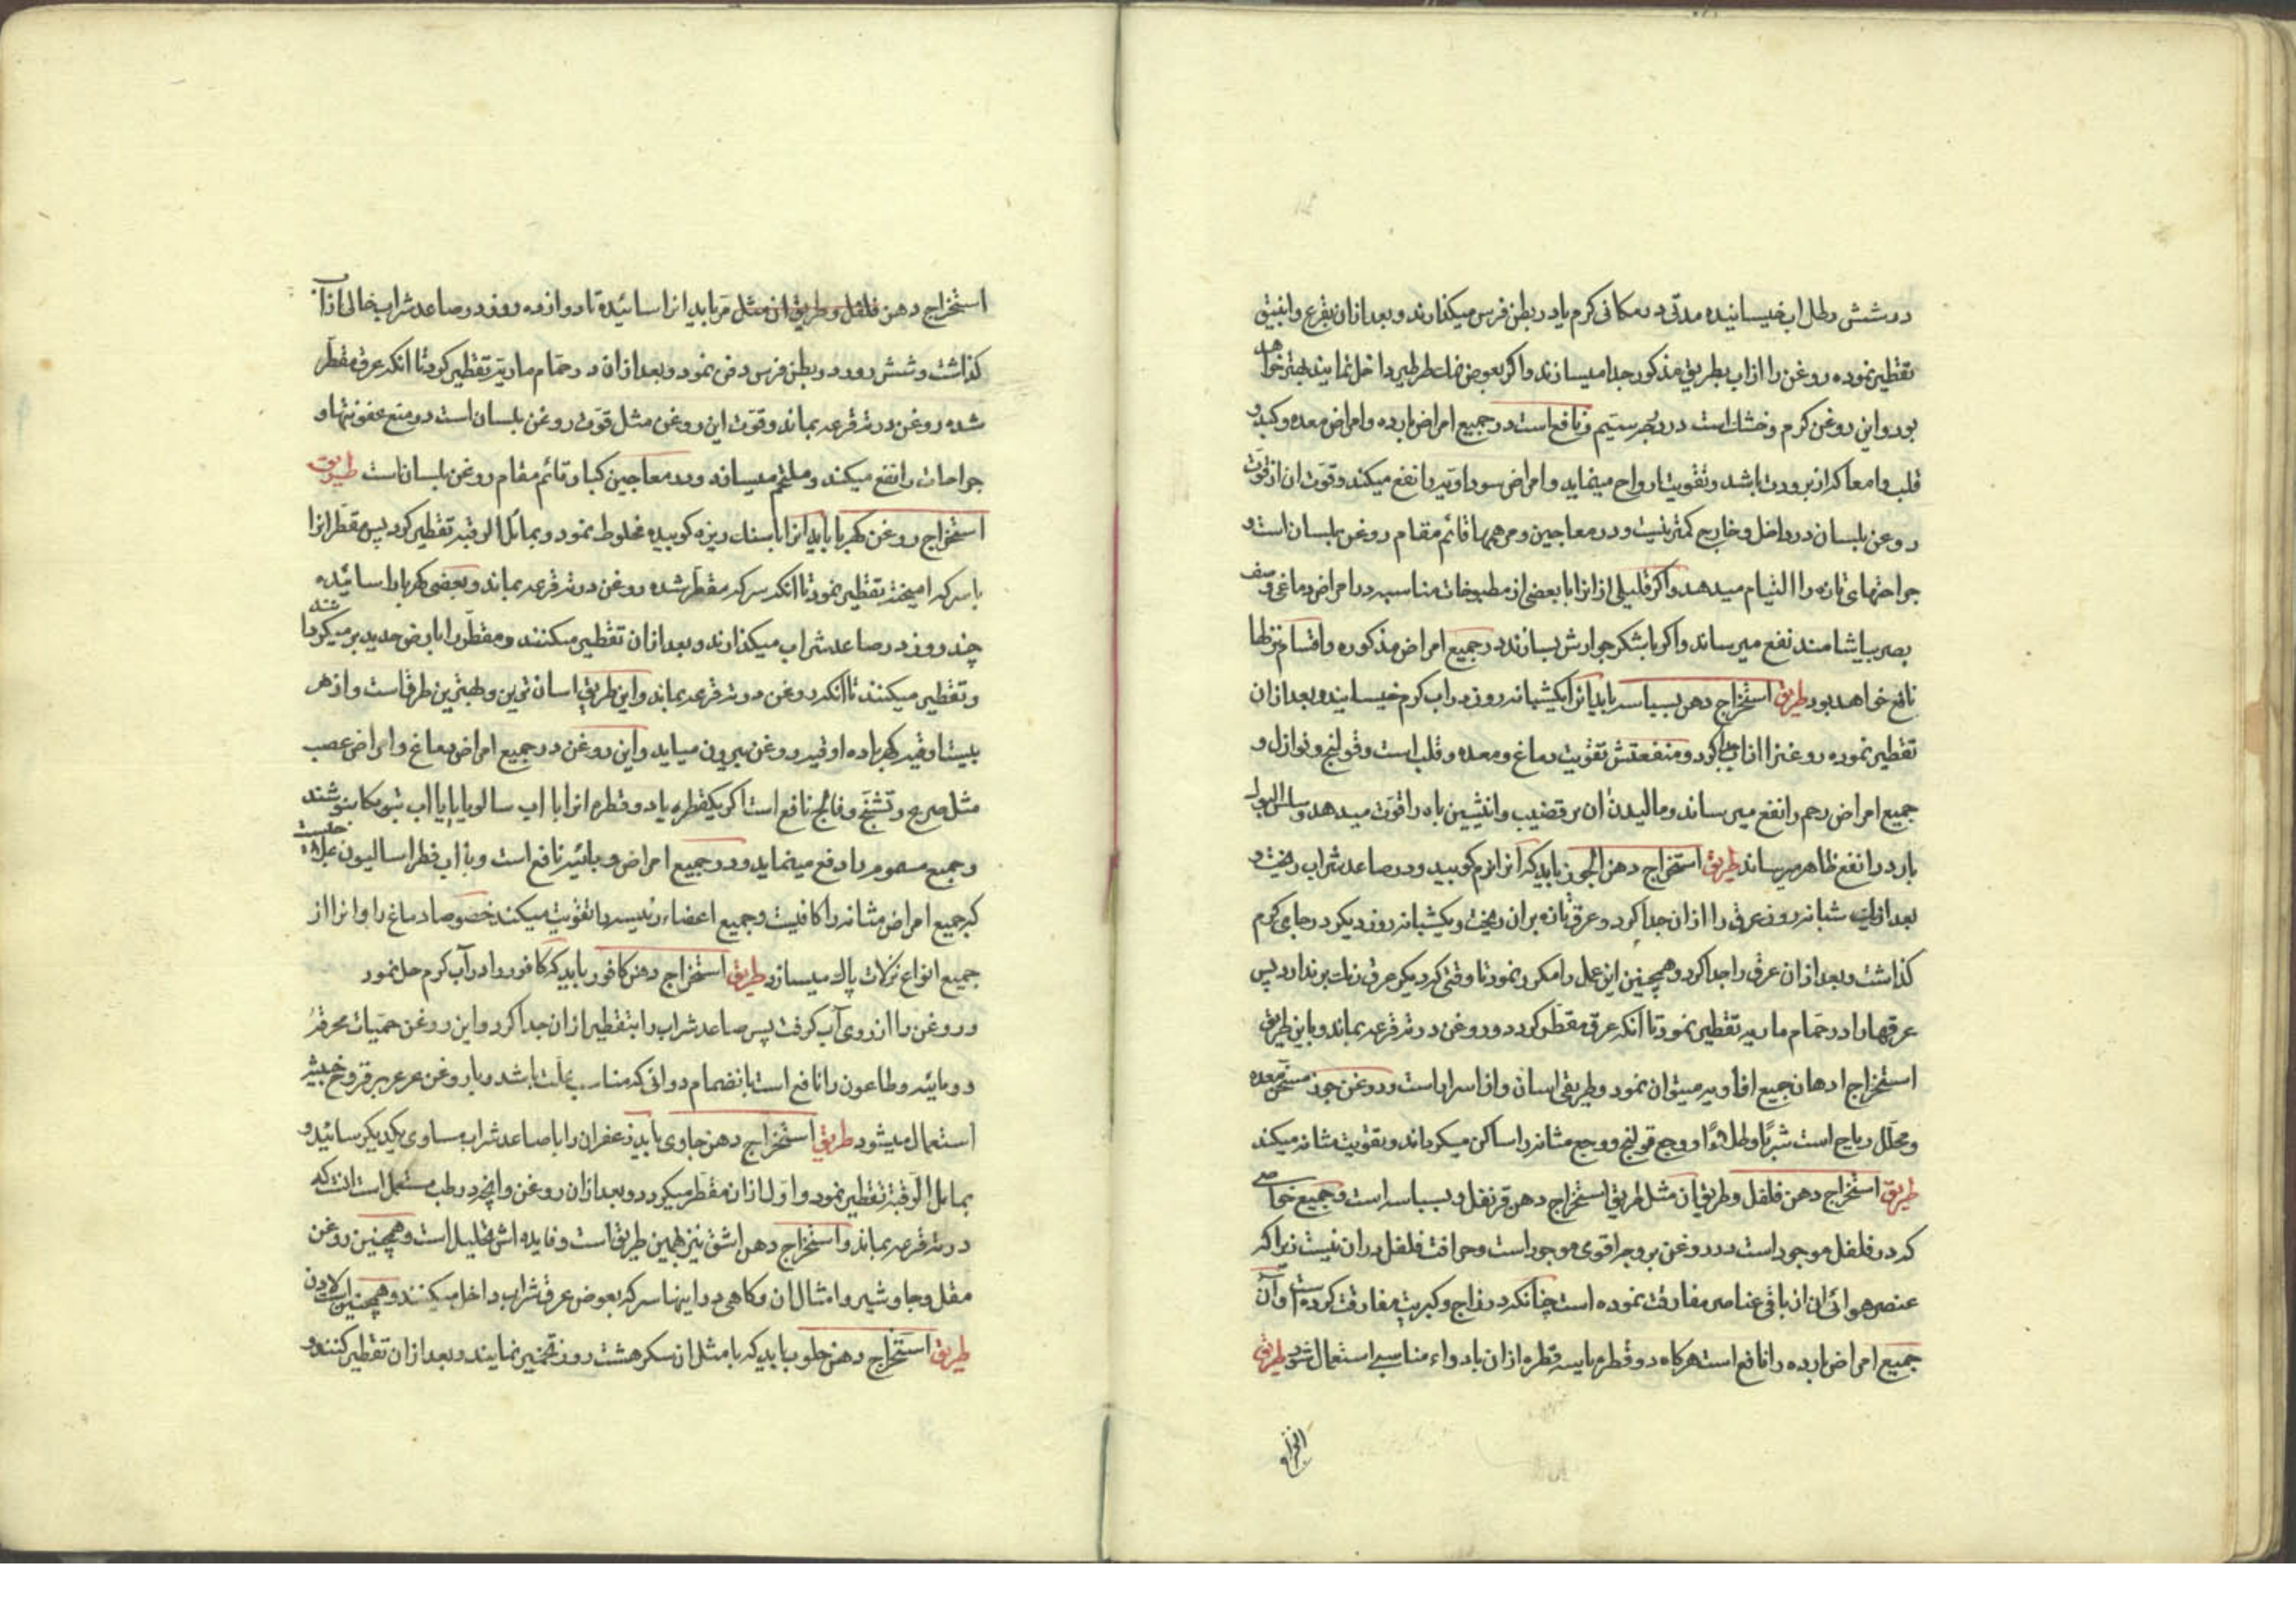 در شش رطل اب خیسانیده مدتی در مکانی کرم یا در بطن فرس میکذارند و بعد ازان بقرع و انبیق
تقطیر نموده روغن را از اب بطریق مذکور جدا میسازند و اکر بعوض نمک طرطیر داخل نمایند بهتر خواهد
بود و این روغن کرم و خشک است در درجه سیم و نافع است در جمیع امراض بارده و امراض معده و کبد و
قلب و امعا که از برودت باشد و تقویت ارواح مینماید و امراض سوداویه را نفع میکند و قوت ان از قوت
روغن بلسان در داخل و خارج کمتر نیست و در معاجین و مرهمها قائم مقام روغن بلسان است و
جراحتهای تازه را التیام میدهد و اکر قلیلی از انرا با بعضی از مطبوخات مناسبه در امراض دماغی و ضعف
بصر بیاشامند نفع میرساند و اکر با شکر جوارش بسازند در جمیع امراض مذکوره و اقسام نزلها
نافع خواهد بود طریق استخراج دهن بسباسه باید انرا یکشبانه روز در اب کرم خیسانید و بعد ازان
تقطیر نموده روغنرا از اب جدا کرد و منفعتش تقویت دماغ و معده و قلب است و قولنج و نوازل و
جمیع امراض رحم را نفع میرساند و مالیدن ان بر قضیب و انثیین باه را قوت میدهد و سلس البول
بارد را نفع ظاهر میرساند طریق استخراج دهن الجوز باید که انرا نرم کوبید و در صاعد شراب ریخت و
بعد از یک شبانه روز عرق را ازان جدا کرد و عرق تازه بران ریخت و یکشبانه روز دیکر در جای کرم
کذاشت و بعد ازان عرق را جدا کرد و همچنین این عمل را مکرر نمود تا وقتی که دیکر عرق رنک برندارد پس
عرقها را در حمام ماریه تقطیر نمود تا انکه عرق مقطر کردد و روغن در ته قرعه بماند و باین طریق
استخراج ادهان جمیع افاویه میتوان نمود و طریق اسان و از اسرار است و روغن جوز مسخن معده
و محلل ریاح است شربًا و طلاءً و وجع قولنج و وجع مثانه را ساکن میکرداند و تقویت مثانه میکند
طریق استخراج دهن فلفل و طریق ان مثل طریق استخراج دهن قرنفل و بسباسه است و جمیع خواصی
که در فلفل موجود است در روغن بر وجه اقوی موجود است و حرافت فلفل دران نیست زیرا که
عنصر هوائی ان از باقی عناصر مفارقت نموده است چنانکه در زاج و کبریت مفارقت کرده است و آن
جمیع امراض بارده را نافع است هرکاه دو قطره یا سه قطره ازان با دواء مناسبی استعمال شود طریق
استخراج دهن فلفل و طریق ان مثل مر باید انرا سائیده تا دوازده روز در صاعد شراب خالی از آب
کذاشت و شش روز در بطن فرس دفن نمود و بعد ازان در حمام ماریه تقطیر کرد تا انکه عرق مقطر
شده روغن در ته قرعه بماند و قوت این روغن مثل قوت روغن بلسان است در منع عفونتها و
جراحات را نفع میکند و ملتحم میسازد و در معاجین کبار قائم مقام روغن بلسان است طریق
استخراج روغن کهربا باید انرا با سنک ریزه کوبیده مخلوط نمود و بمائل الرقبه تقطیر کرد پس مقطر انرا
با سرکه امیخته تقطیر نمود تا انکه سرکه مقطر شده روغن در ته قرعه بماند و بعضی کهربا را سائیده
چند روز در صاعد شراب میکذارند و بعد ازان تقطیر میکنند و مقطر را با رض جدید بر میکردانند
و تقطیر میکنند تا انکه روغن در ته قرعه بماند و این طریق اسان ترین و بهترین طرق است و از هر
بیست اوقیه کهربا ده اوقیه روغن بیرون میاید و این روغن در جمیع امراض دماغ و امراض عصب
مثل صرع و تشنج و فالج نافع است اکر یکقطره یا دو قطره انرا با اب سالویا یا با اب بتونیکا بنوشند
و جمیع سموم را دفع مینماید و در جمیع امراض وبائیه نافع است و با اب فطراسالیون
که جمیع امراض مثانه را کافیست و جمیع اعضاء رئیسه را تقویت میکند خصوصا دماغ را و انرا از
جمیع انواع نزلات پاک میسازد طریق استخراج دهن کافور باید که کافور را در آب کرم حل نمود
و روغن را از روی آب کرفت پس صاعد شراب را بتقطیر ازان جدا کرد و این روغن حمیات محرقه
و وبائیه و طاعون را نافع است با نضمام دوائی که مناسب علت باشد و با روغن عرعر بر قروح خبیثه
استعمال میشود طریق استخراج دهن جاوی باید زعفران را با صاعد شراب مساوی یکدیکر سائید و
بمائل الرقبه تقطیر نمود و اول ازان مقطر میکردد و بعد ازان روغن و انچه در طب مستعمل است انست که
در ته قرعه بماند و استخراج دهن اشق نیز بهمین طریق است و فایده اش تحلیل است و همچنین روغن
مقل و جاوشیر و امثال ان و کاهی در اینها سرکه بعوض عرق شراب داخل میکنند و همچنین است لادن
طریق استخراج دهن حلوب باید که با مثل ان سکر هشت روز تخمیر نمایند و بعد ازان تقطیر کنند و
استخراج